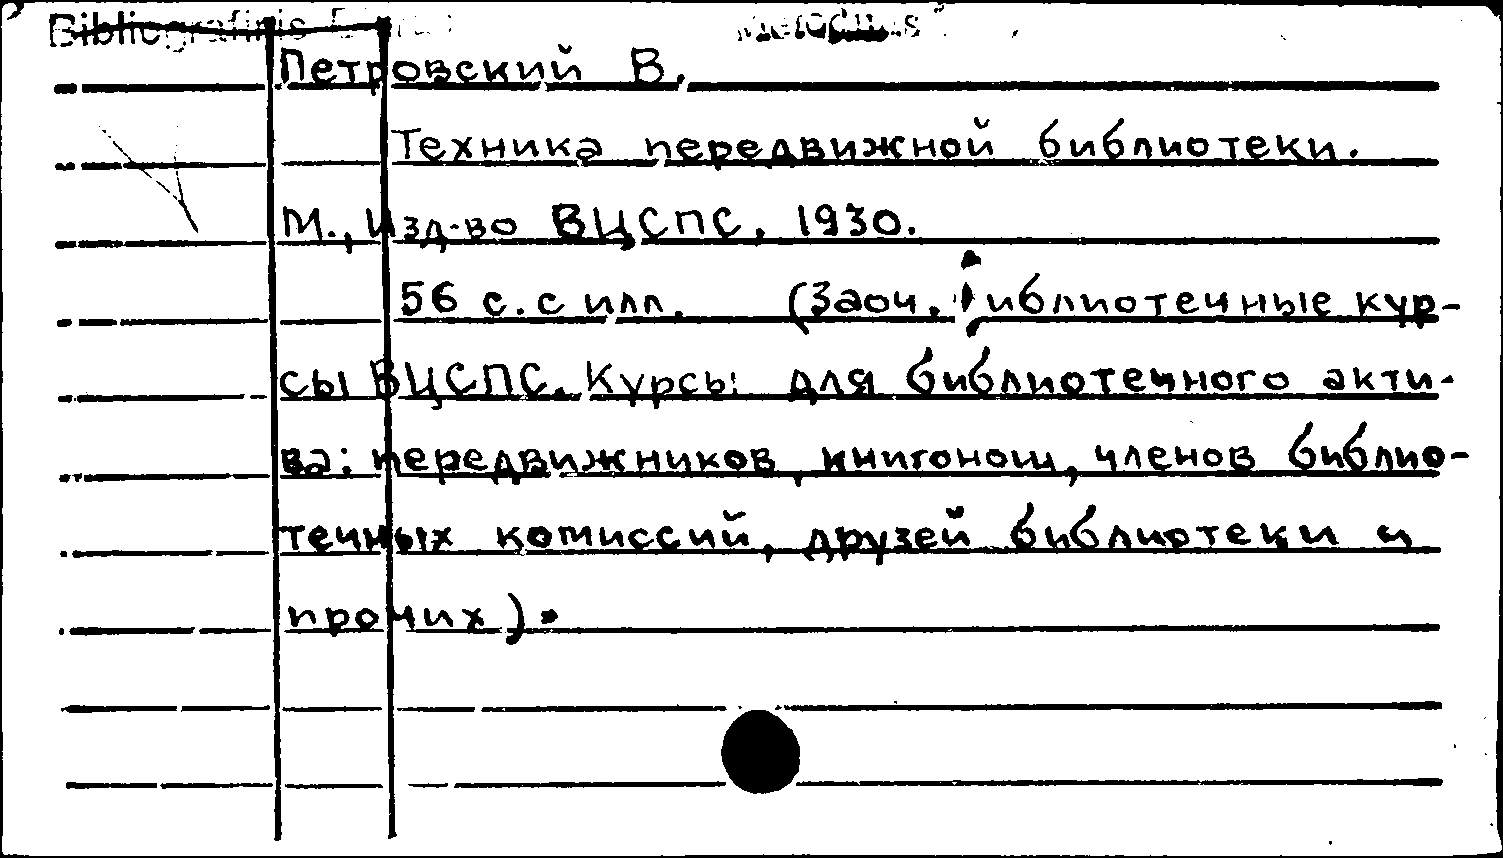 Bibliografinis
Петровский В.
Техника передвижной библиотеки.
М., Изд-во ВЦСПС, 1930.
56 с. с илл. (Заоч. библиотечные кур-
сы ВЦСПС. Курсы для библиотечного акти-
ва: передвижников, книгонош, членов библио-
течных комиссий, друзей библиотеки и
прочих).